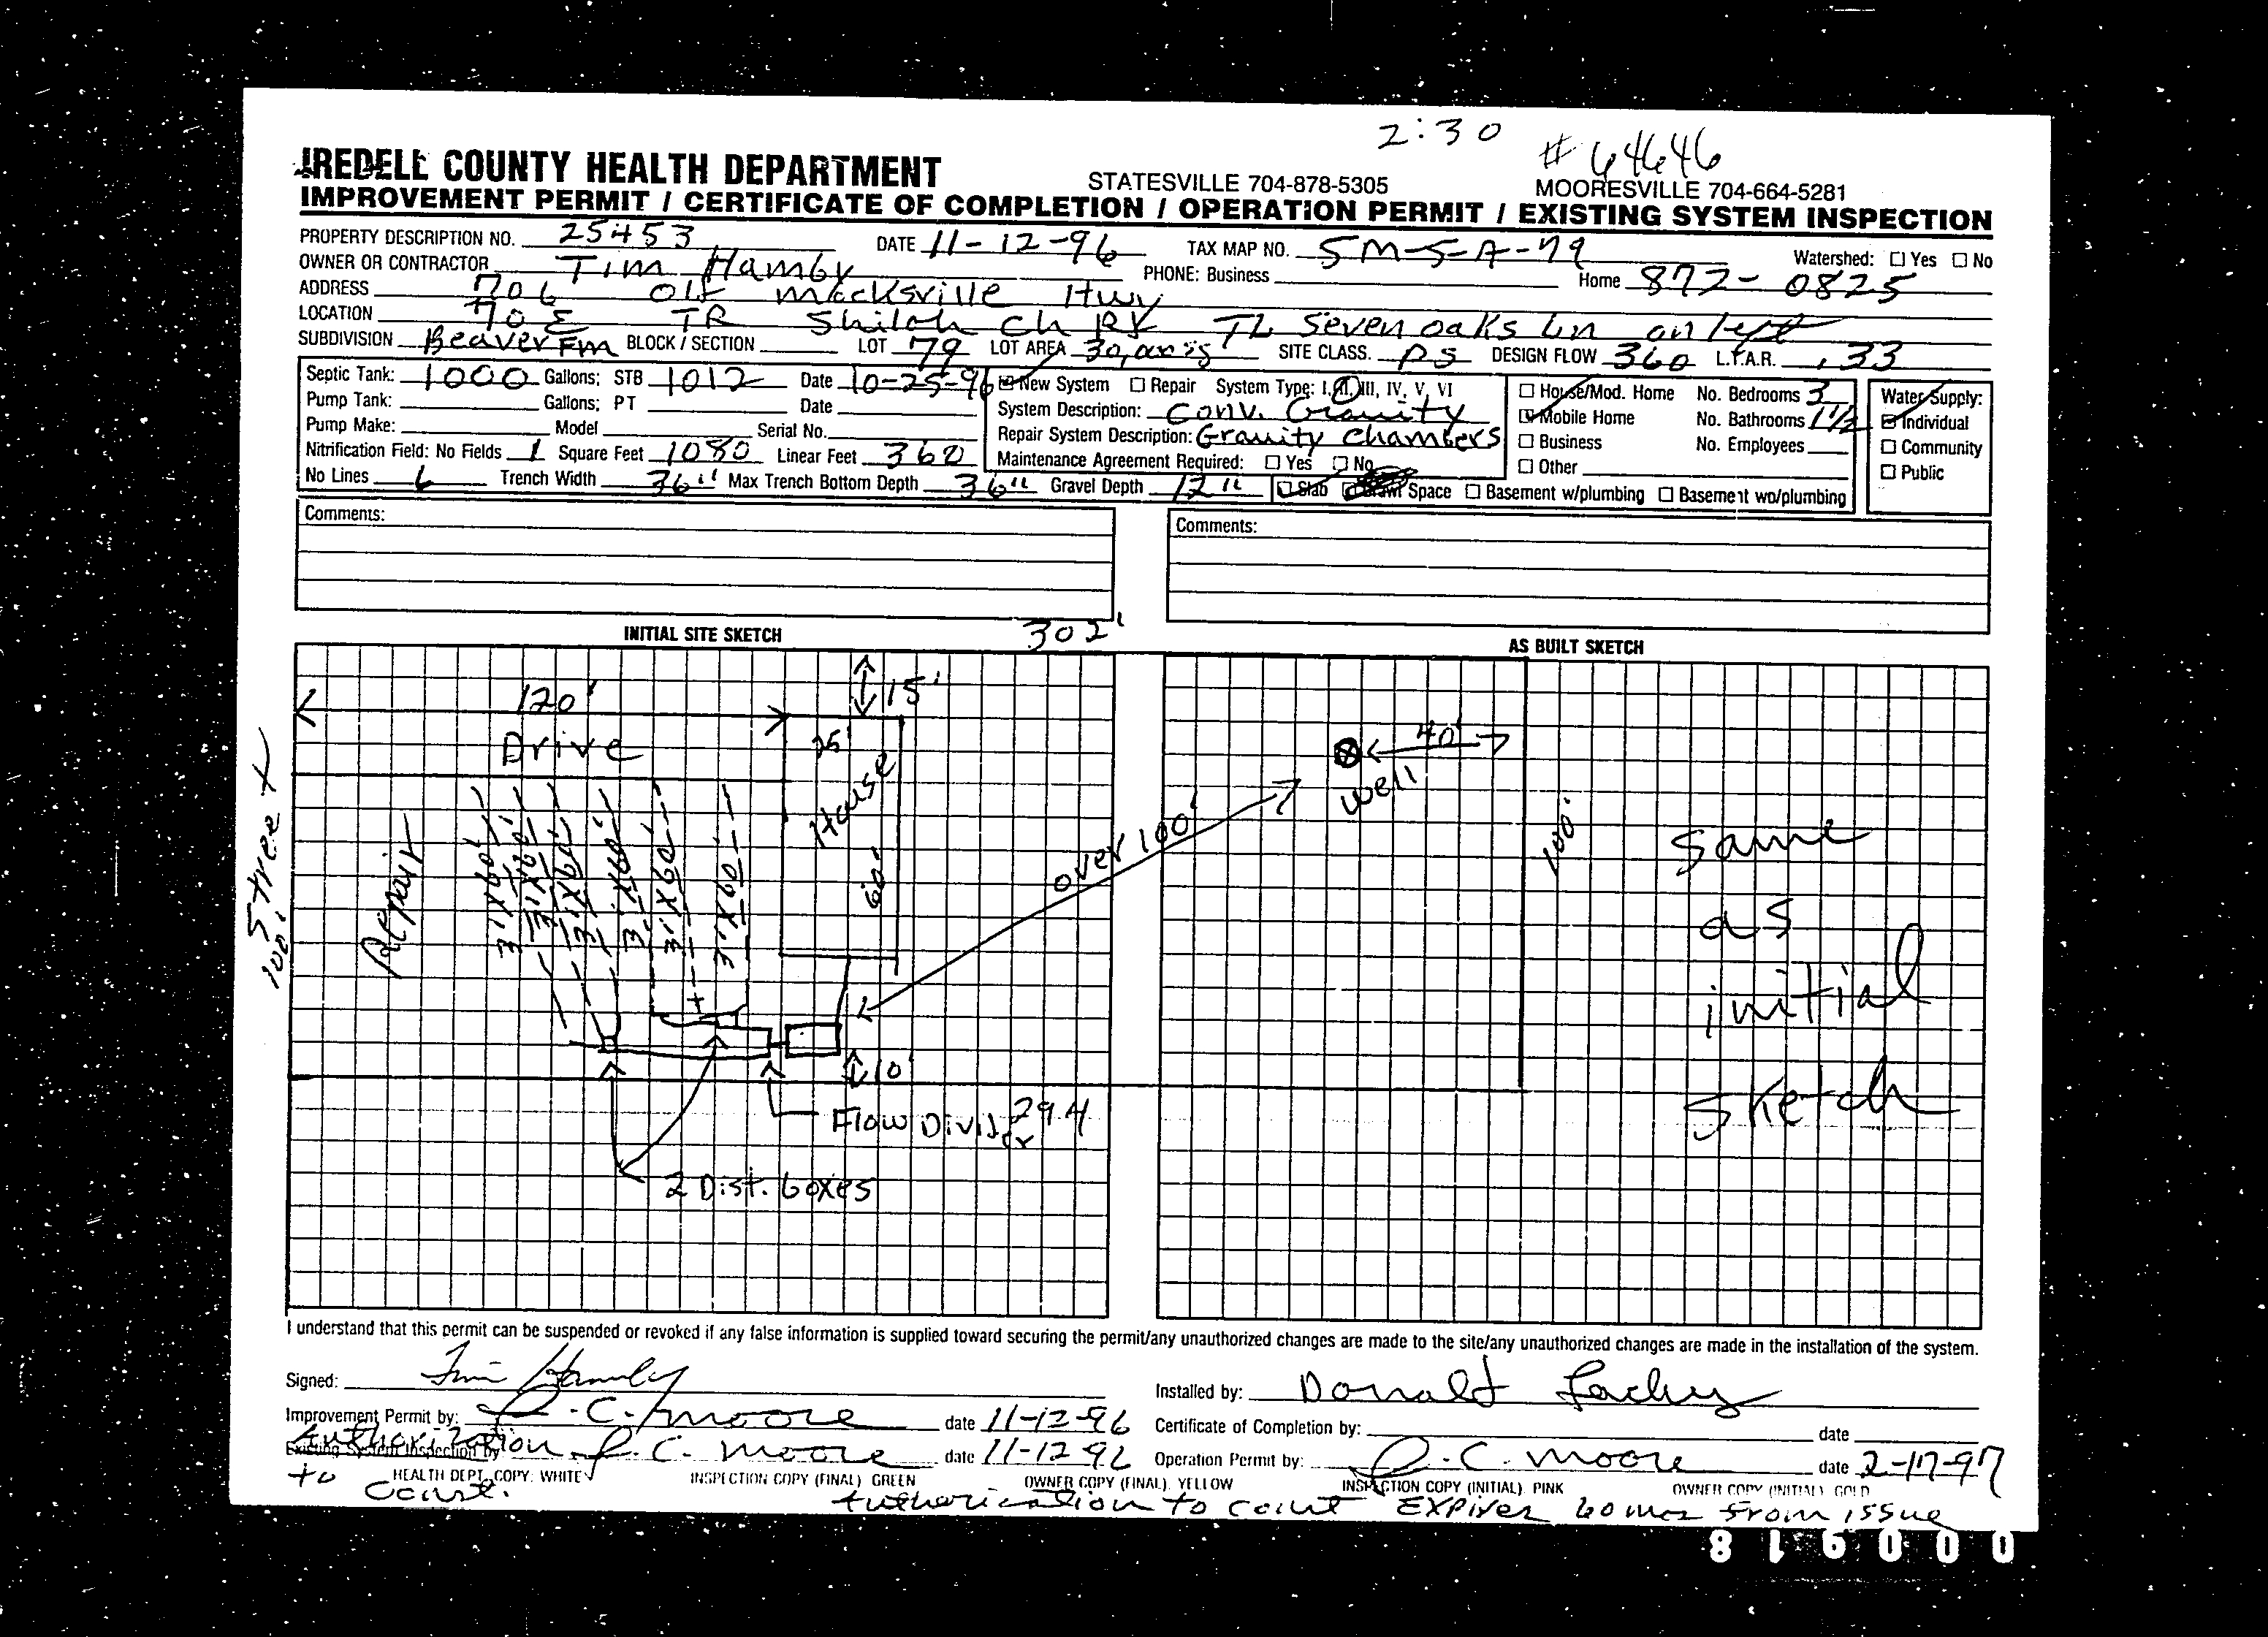 2:30
# 64646
IREDELL COUNTY HEALTH DEPARTMENT STATESVILLE 704-878-5305 MOORESVILLE 704-664-5281
IMPROVEMENT PERMIT / CERTIFICATE OF COMPLETION / OPERATION PERMIT / EXISTING SYSTEM INSPECTION
PROPERTY DESCRIPTION NO. 25453 DATE 11-12-96 TAX MAP NO. 5M-5-A-79 Watershed: Yes No
OWNER OR CONTRACTOR Tim Hamby PHONE: Business Home 872-0825
ADDRESS 706 Old Mocksville Hwy
LOCATION 70 E TR Shiloh Ch Rd TL Seven oaks Ln on left
SUBDIVISION Beaver Fm BLOCK / SECTION LOT 79 LOT AREA SITE CLASS. PS DESIGN FLOW 360 L.T.A.R. .33
Septic Tank: 1000 Gallons; STB 1012 Date 10-25-96 New System Repair System Type: I, II, III, IV, V, VI House/Mod. Home No. Bedrooms 3 Water Supply:
Pump Tank: Gallons; PT Date System Description: Conv. Gravity Mobile Home No. Bathrooms 1 1/2 Individual
Pump Make: Model Serial No. Repair System Description: Gravity Chambers Business No. Employees Community
Nitrification Field: No Fields 1 Square Feet 1080 Linear Feet 360 Maintenance Agreement Required: Yes No Other Public
No Lines 6 Trench Width 36" Max Trench Bottom Depth 36" Gravel Depth 12" Slab Crawl Space Basement w/plumbing Basement wo/plumbing
Comments: Comments:
INITIAL SITE SKETCH 302' AS BUILT SKETCH
120' 15'
Drive 25' 40'
House well
Street 100'
Repair 3'X60' 3'X60' 3'X60' 3'X60' 3'X60' 3'X60' 60' over 100' 100'
Same
as
initial
sketch
10'
Flow Divider 294
2 Dist. boxes
I understand that this permit can be suspended or revoked if any false information is supplied toward securing the permit/any unauthorized changes are made to the site/any unauthorized changes are made in the installation of the system.
Signed: Tim Hamby Installed by: Donald Lackey
Improvement Permit by: R.C. Moore date 11-12-96 Certificate of Completion by: date
Existing System Inspection by Authorization R.C. Moore date 11-12-96 Operation Permit by: R.C. Moore date 2-17-97
to Const.
HEALTH DEPT. COPY: WHITE INSPECTION COPY (FINAL) GREEN OWNER COPY (FINAL). YELLOW INSPECTION COPY (INITIAL). PINK OWNER COPY (INITIAL) GOLD
Authorization to Const Expires 60 mos from issue
000918